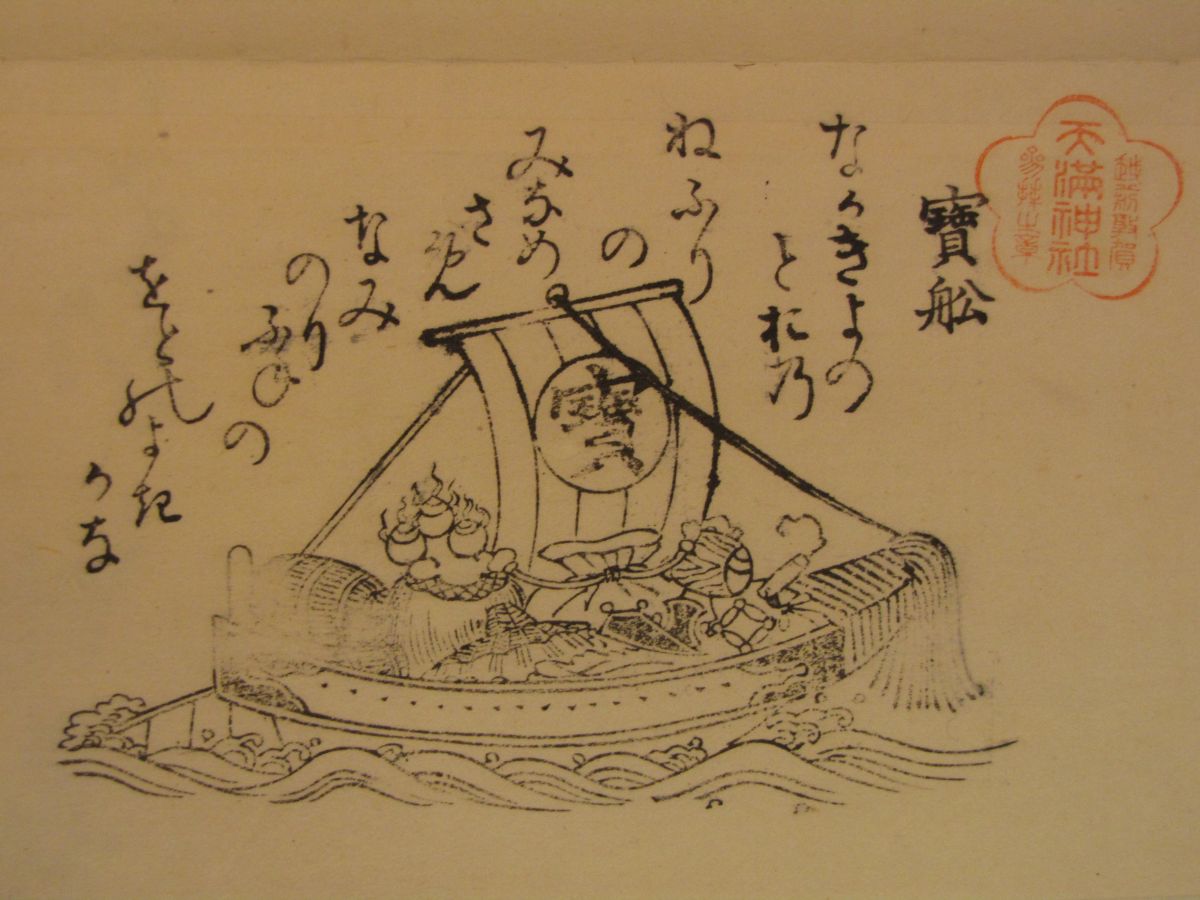 越前敦賀
天満神社
参拝之章
寶舩
なかきよの
とおの
ねふり
の
みなめ
さめ
なみ
のり
ふねの
をとのよき
かな
寶